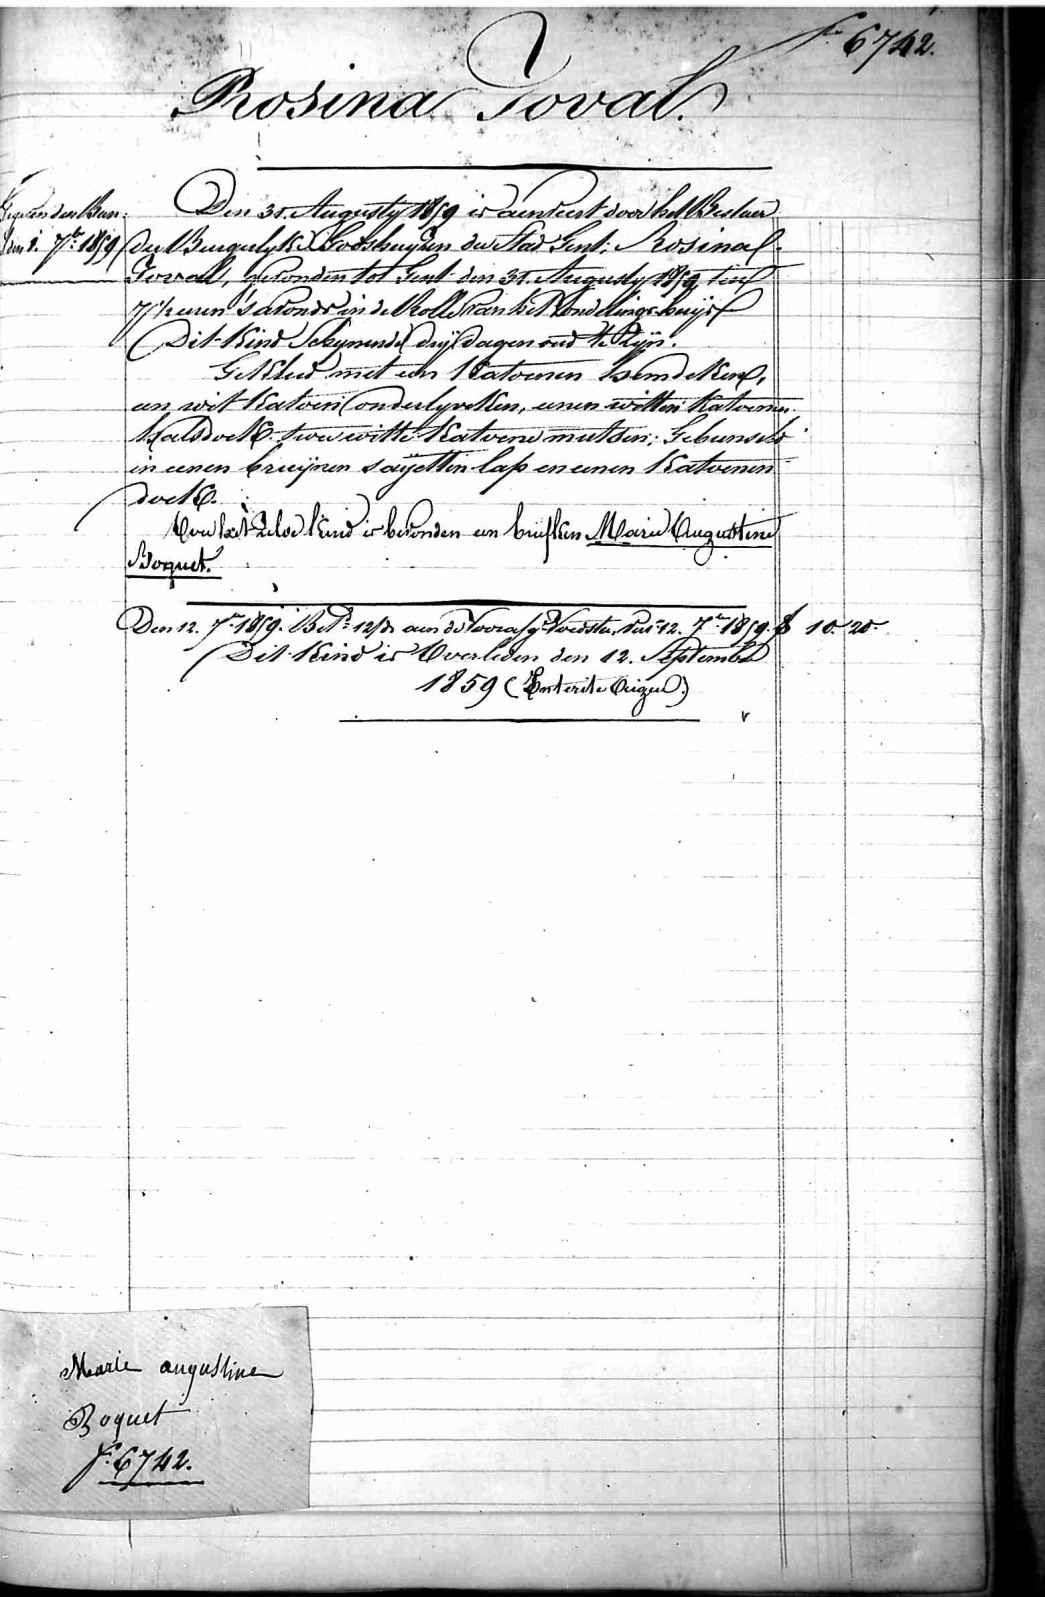 f° 6742.
Rosina Toval.
Den 31. Augusty 1859 is aenveert door het Bestuer
den 1. 7bre 1859
der Burgerlyke Godshuyzen der Stad Gent: Rosina
Toval, gevonden tot Gent den 31. Augusty 1859, ten
7 1/2 uren 's avonds in de Rolle van het Vondelingshuijs
Dit Kind Schynende drij dagen oud te Zijn.
Gekleed met een Katoenen hemdeken,
een wit Katoen onderlyveken, eenen witten Katoenen
halsdoek twee witte Katoene mutsen; Gebunseld
in eenen bruijnen saijetten lap en eenen Katoenen
doek.
Op het Zelve kind is bevonden een briefken Marie Augustine
Boquet.
Den 12. 7bre 1859. Bet. 12/d. aen de Voedster, 12. 7bre 1859. f 10-20-
Dit Kind is Overleden den 12. September
1859 (Enterite Aigue.)
Marie augustine
Boquet
f° 6742.